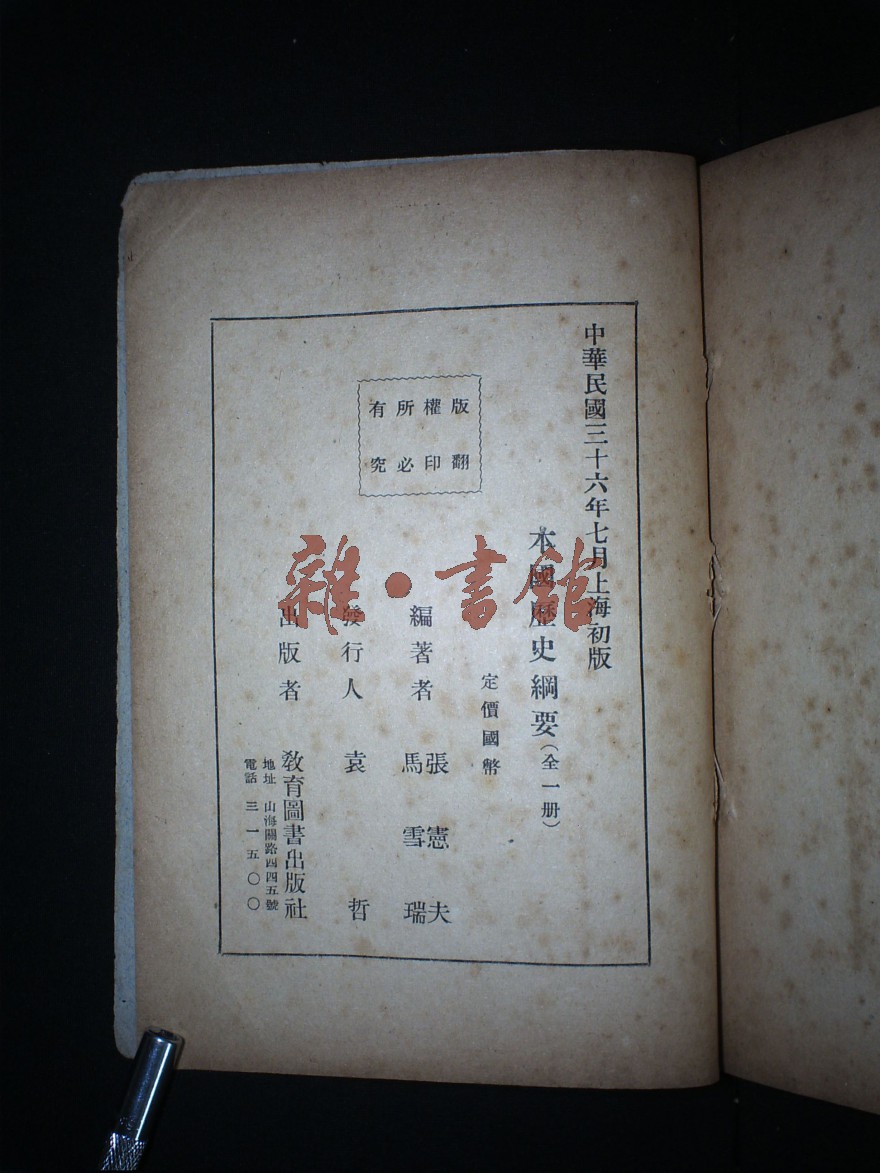 中華民國三十六年七月上海初版
本國歷史綱要(全一册)
定價國幣
版權所有
翻印必究
編著者 張憲夫
馬雪瑞
發行人 袁哲
出版者 教育圖書出版社
地址 山海關路四四五號
電話 三一五〇〇
雜·書館